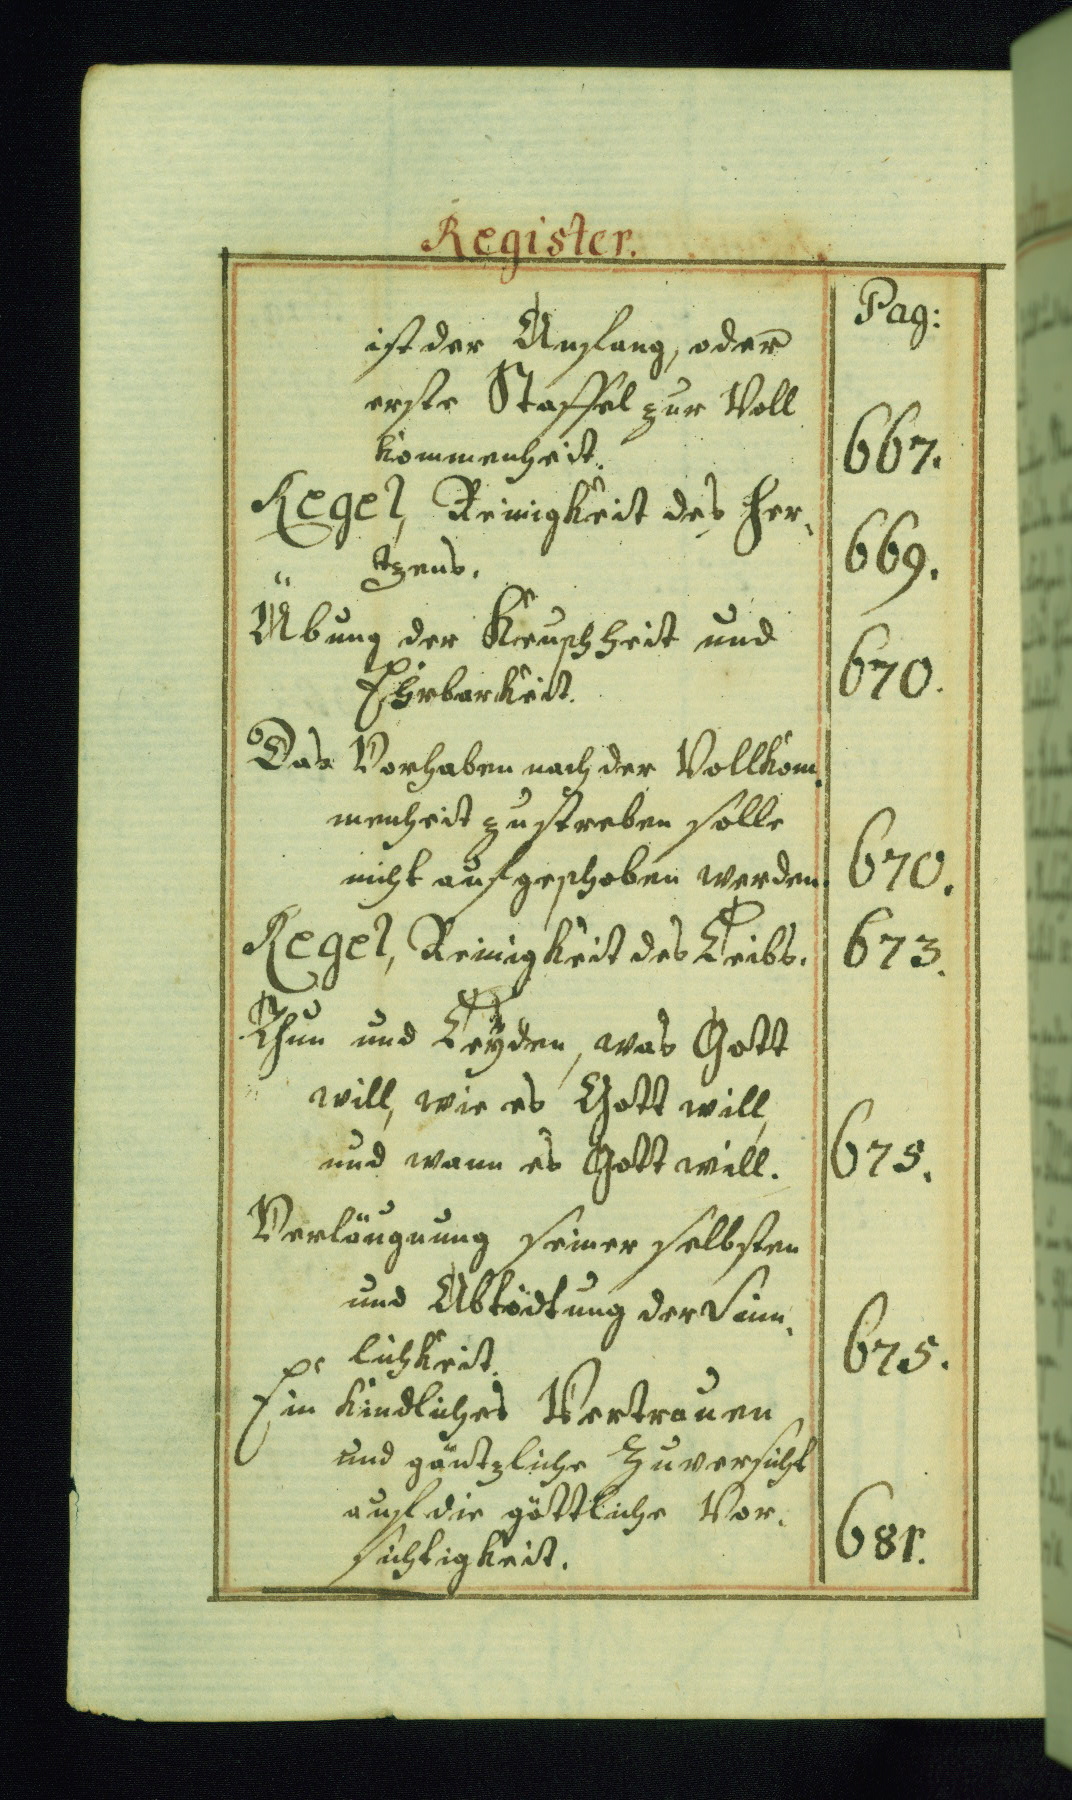 Register.
Pag:
ist der Anfang, oder
erste Staffel zur Voll
kommenheit. 667.
Regel, Reinigkeit des Her-
tzens. 669.
Übung der Keuschheit und
Ehrbarkeit. 670.
Das Vorhaben nach der Vollkom-
menheit zu streben solle
nicht aufgeschoben werden. 670.
Regel, Reinigkeit des Leibs. 673.
Thun und Leyden, was Gott
will, wie es Gott will,
und wann es Gott will. 675.
Verläugnung seiner selbsten
und Abtödtung der Sinn-
lichkeit. 675.
Ein kindliches Vertrauen
und gäntzliche Zuversicht
auf die göttliche Vor-
sichtigkeit. 681.